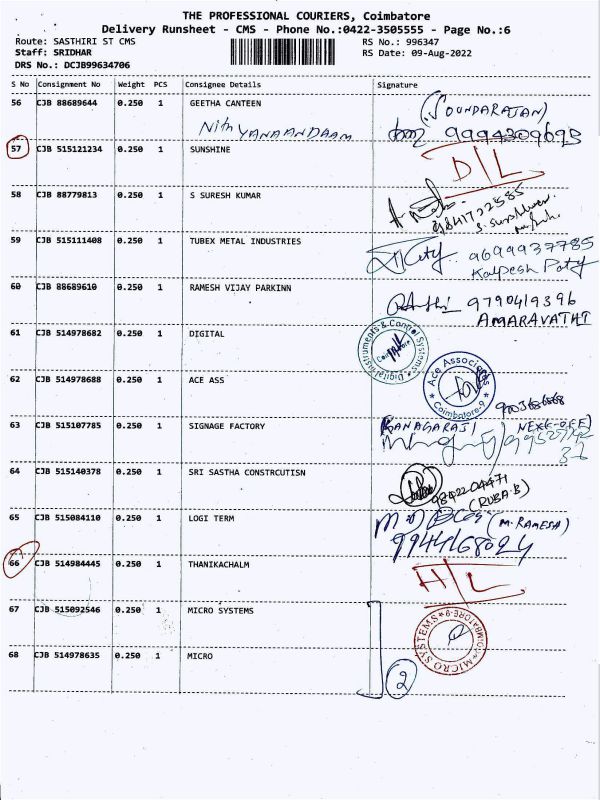 THE PROFESSIONAL COURIERS, Coimbatore
Delivery Runsheet - CMS - Phone No.:0422-3505555 - Page No.:6
Route: SASTHIRI ST CMS RS No.: 996347
Staff: SRIDHAR RS Date: 09-Aug-2022
DRS No.: DCJB99634706
S No Consignment No Weight PCS Consignee Details Signature
56 CJB 88689644 0.250 1 GEETHA CANTEEN (SOUNDARAJAN)
NithYANAANDAAM 9994309693
57 CJB 515121234 0.250 1 SUNSHINE D/L
58 CJB 88779813 0.250 1 S SURESH KUMAR 9841722585
59 CJB 515111408 0.250 1 TUBEX METAL INDUSTRIES 9699937785
Kalpesh
60 CJB 88689610 0.250 1 RAMESH VIJAY PARKINN 9790419396
AMARAVATHI
61 CJB 514978682 0.250 1 DIGITAL Digital Instruments & Control Systems Coimbatore
62 CJB 514978688 0.250 1 ACE ASS Ace Associates Coimbatore-9
63 CJB 515107785 0.250 1 SIGNAGE FACTORY KANAGARAJ
64 CJB 515140378 0.250 1 SRI SASTHA CONSTRCUTISN 9842204471
(RUBA.B)
65 CJB 515084110 0.250 1 LOGI TERM (M.RAMESH)
9944168024
66 CJB 514984445 0.250 1 THANIKACHALM H/L
67 CJB 515092546 0.250 1 MICRO SYSTEMS MICRO SYSTEMS COIMBATORE-9
68 CJB 514978635 0.250 1 MICRO 2